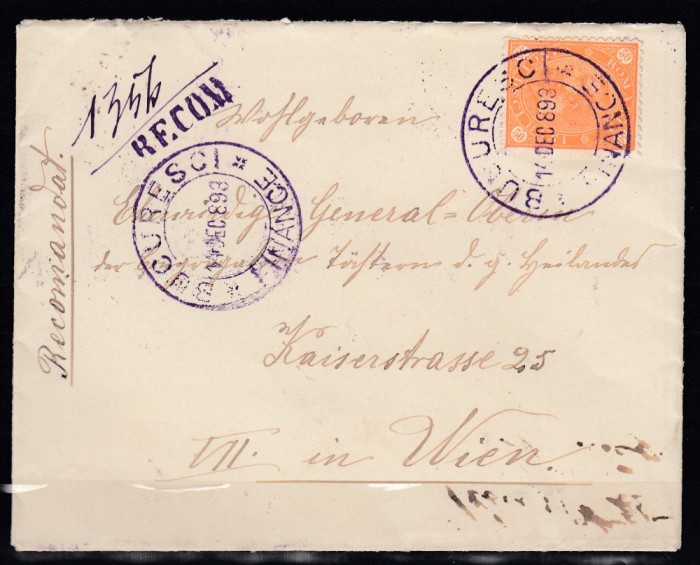 1356
RECOM
Recomandat.
BUCURESCI * FINANCE *
14 DEC 893
BUCURESCI * FINANCE *
14 DEC 893
50
ROM
50
Wohlgeboren
Ehrwürdige General=Oberin
der Congregation Töchtern d. g. Heilandes
Kaiserstrasse 25
VII. in Wien.